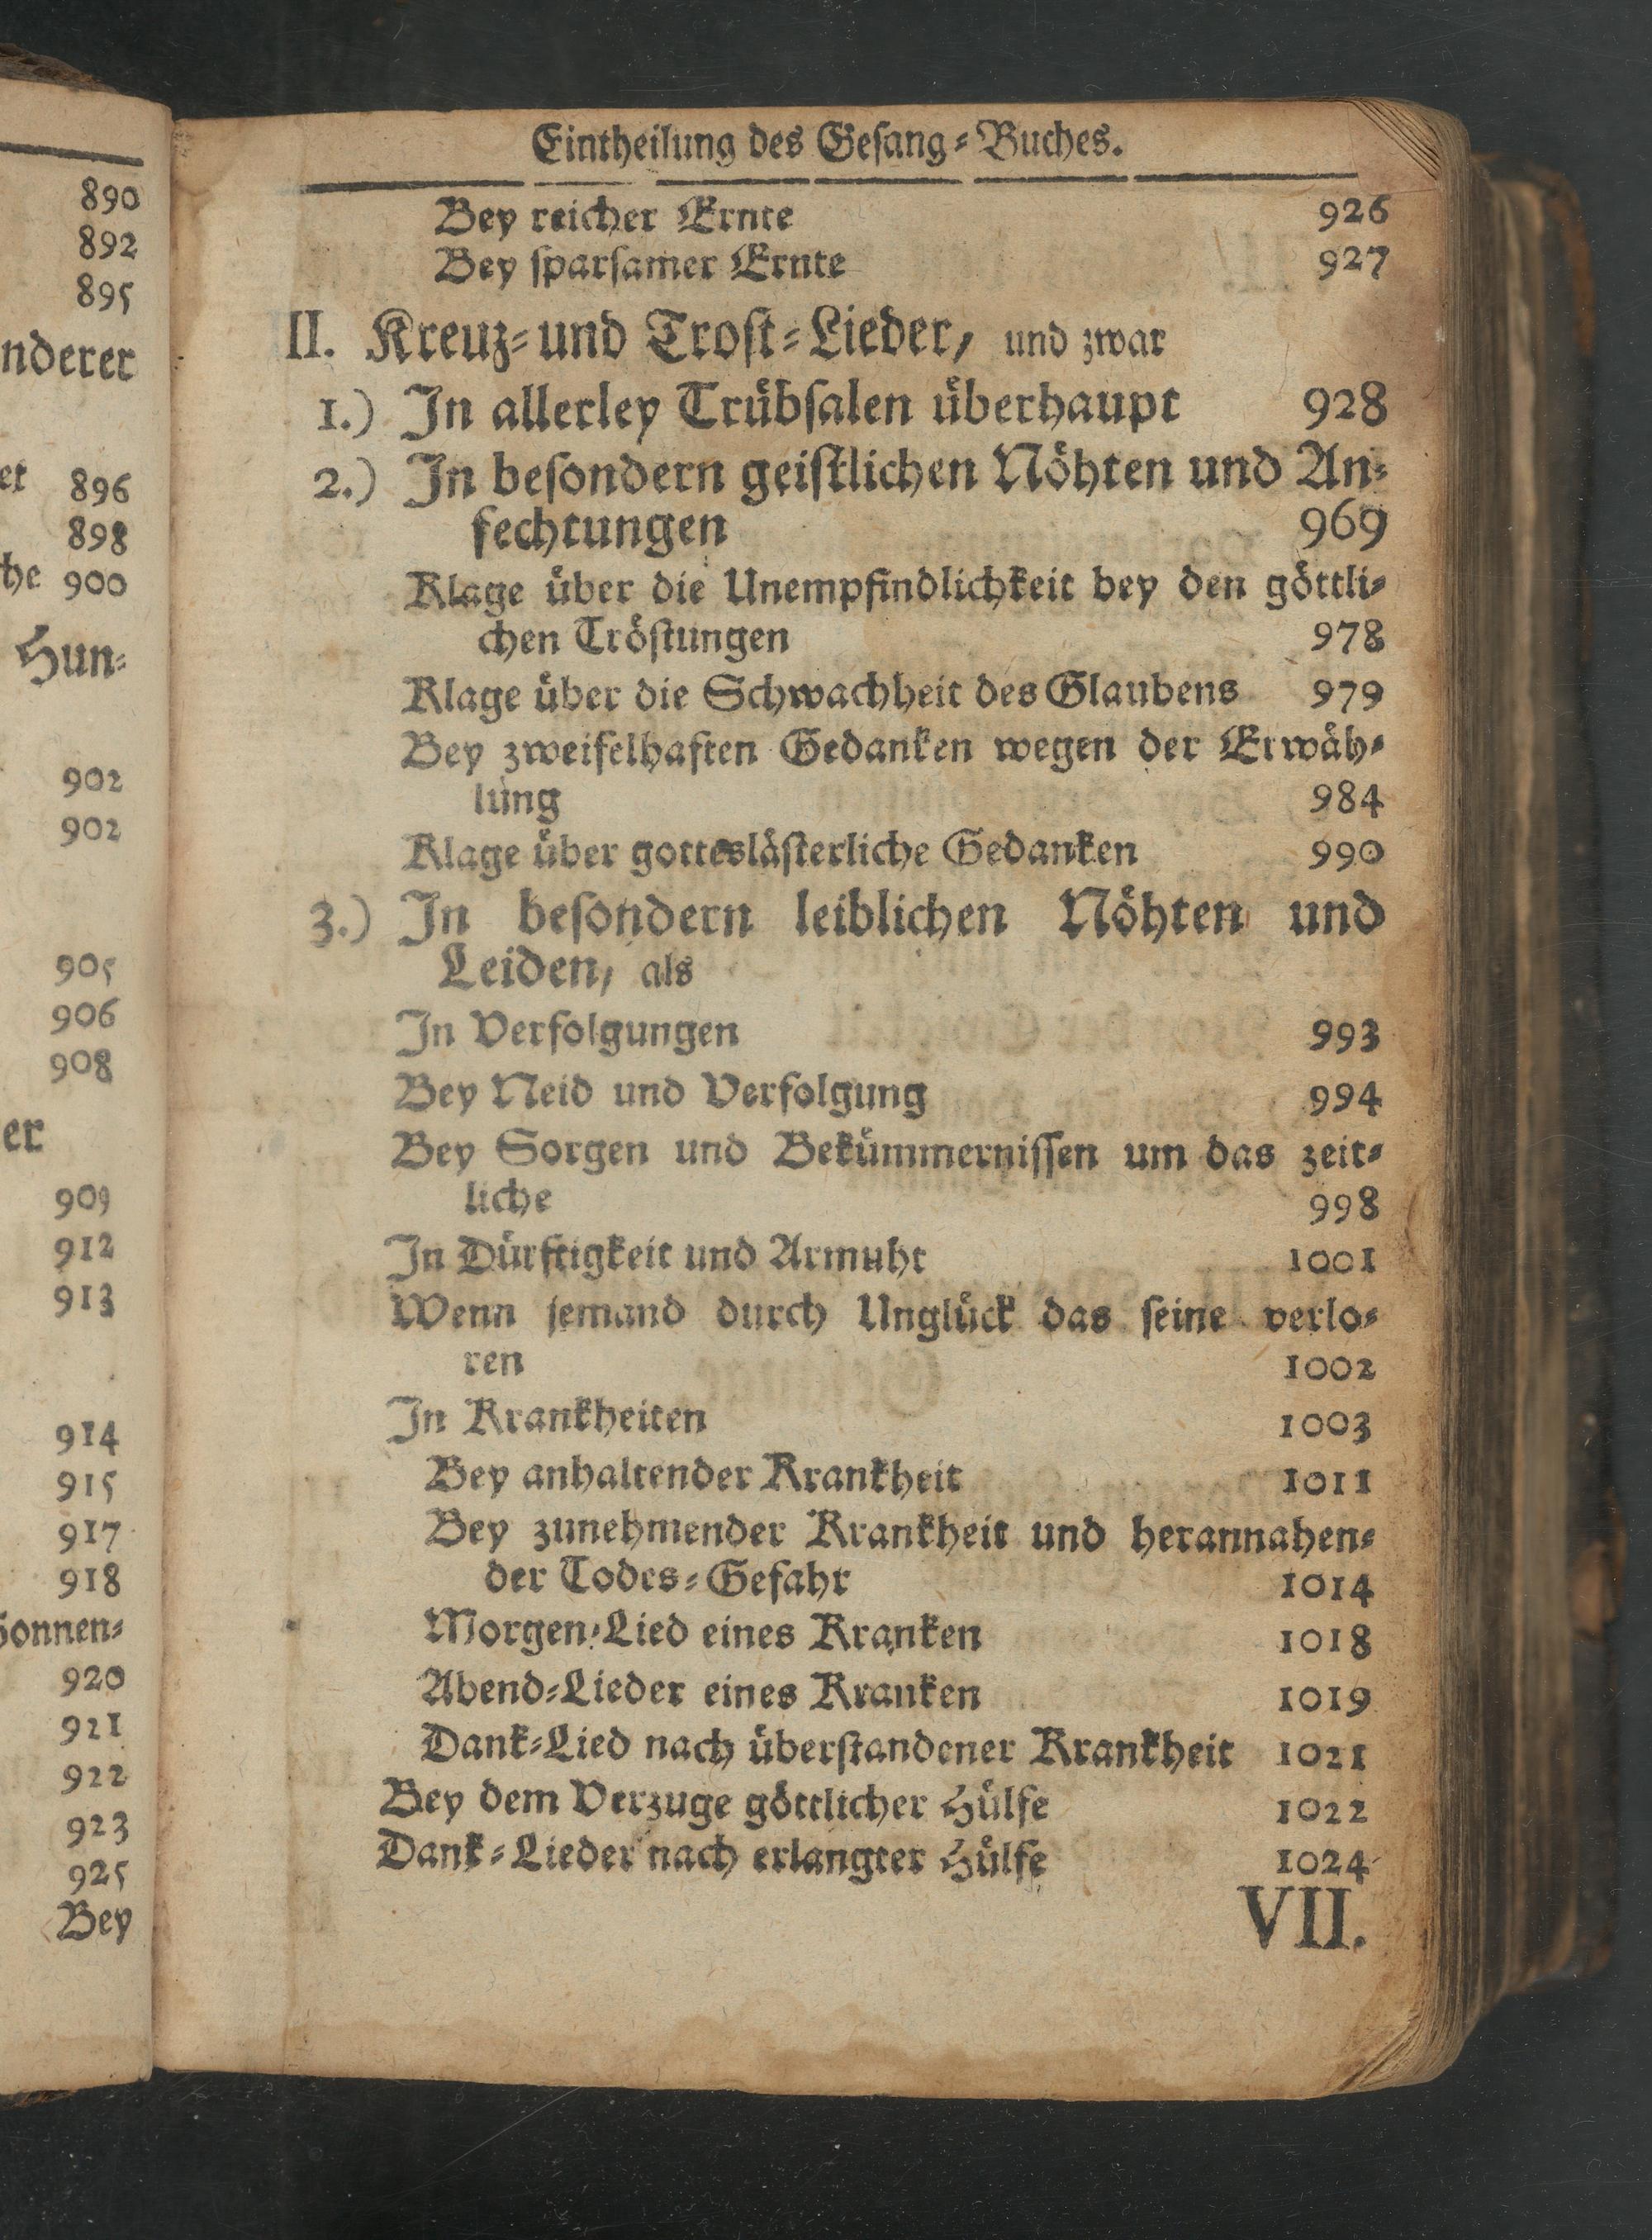 890
892
895
nderer
et 896
898
che 900
Hun⸗
902
902
905
906
908
er
909
912
913
914
915
917
918
Sonnen⸗
920
921
922
923
925
Bey
Eintheilung des Gesang⸗Buches.
Bey reicher Ernte 926
Bey sparsamer Ernte 927
II. Kreuz⸗und Trost⸗Lieder, und zwar
1.) In allerley Trübsalen überhaupt 928
2.) In besondern geistlichen Nöhten und An⸗
fechtungen 969
Klage über die Unempfindlichkeit bey den göttli⸗
chen Tröstungen 978
Klage über die Schwachheit des Glaubens 979
Bey zweifelhaften Gedanken wegen der Erwäh⸗
lung 984
Klage über gotteslästerliche Gedanken 990
3.) In besondern leiblichen Nöhten und
Leiden, als
In Verfolgungen 993
Bey Neid und Verfolgung 994
Bey Sorgen und Bekümmernissen um das zeit⸗
liche 998
In Dürftigkeit und Armuht 1001
Wenn jemand durch Unglück das seine verlo⸗
ren 1002
In Krankheiten 1003
Bey anhaltender Krankheit 1011
Bey zunehmender Krankheit und herannahen⸗
der Todes⸗Gefahr 1014
Morgen⸗Lied eines Kranken 1018
Abend⸗Lieder eines Kranken 1019
Dank⸗Lied nach überstandener Krankheit 1021
Bey dem Verzuge göttlicher Hülfe 1022
Dank⸗Lieder nach erlangter Hülfe 1024
VII.